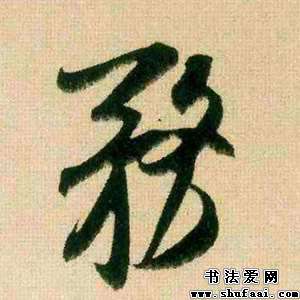 務
书法爱网
www.shufaai.com